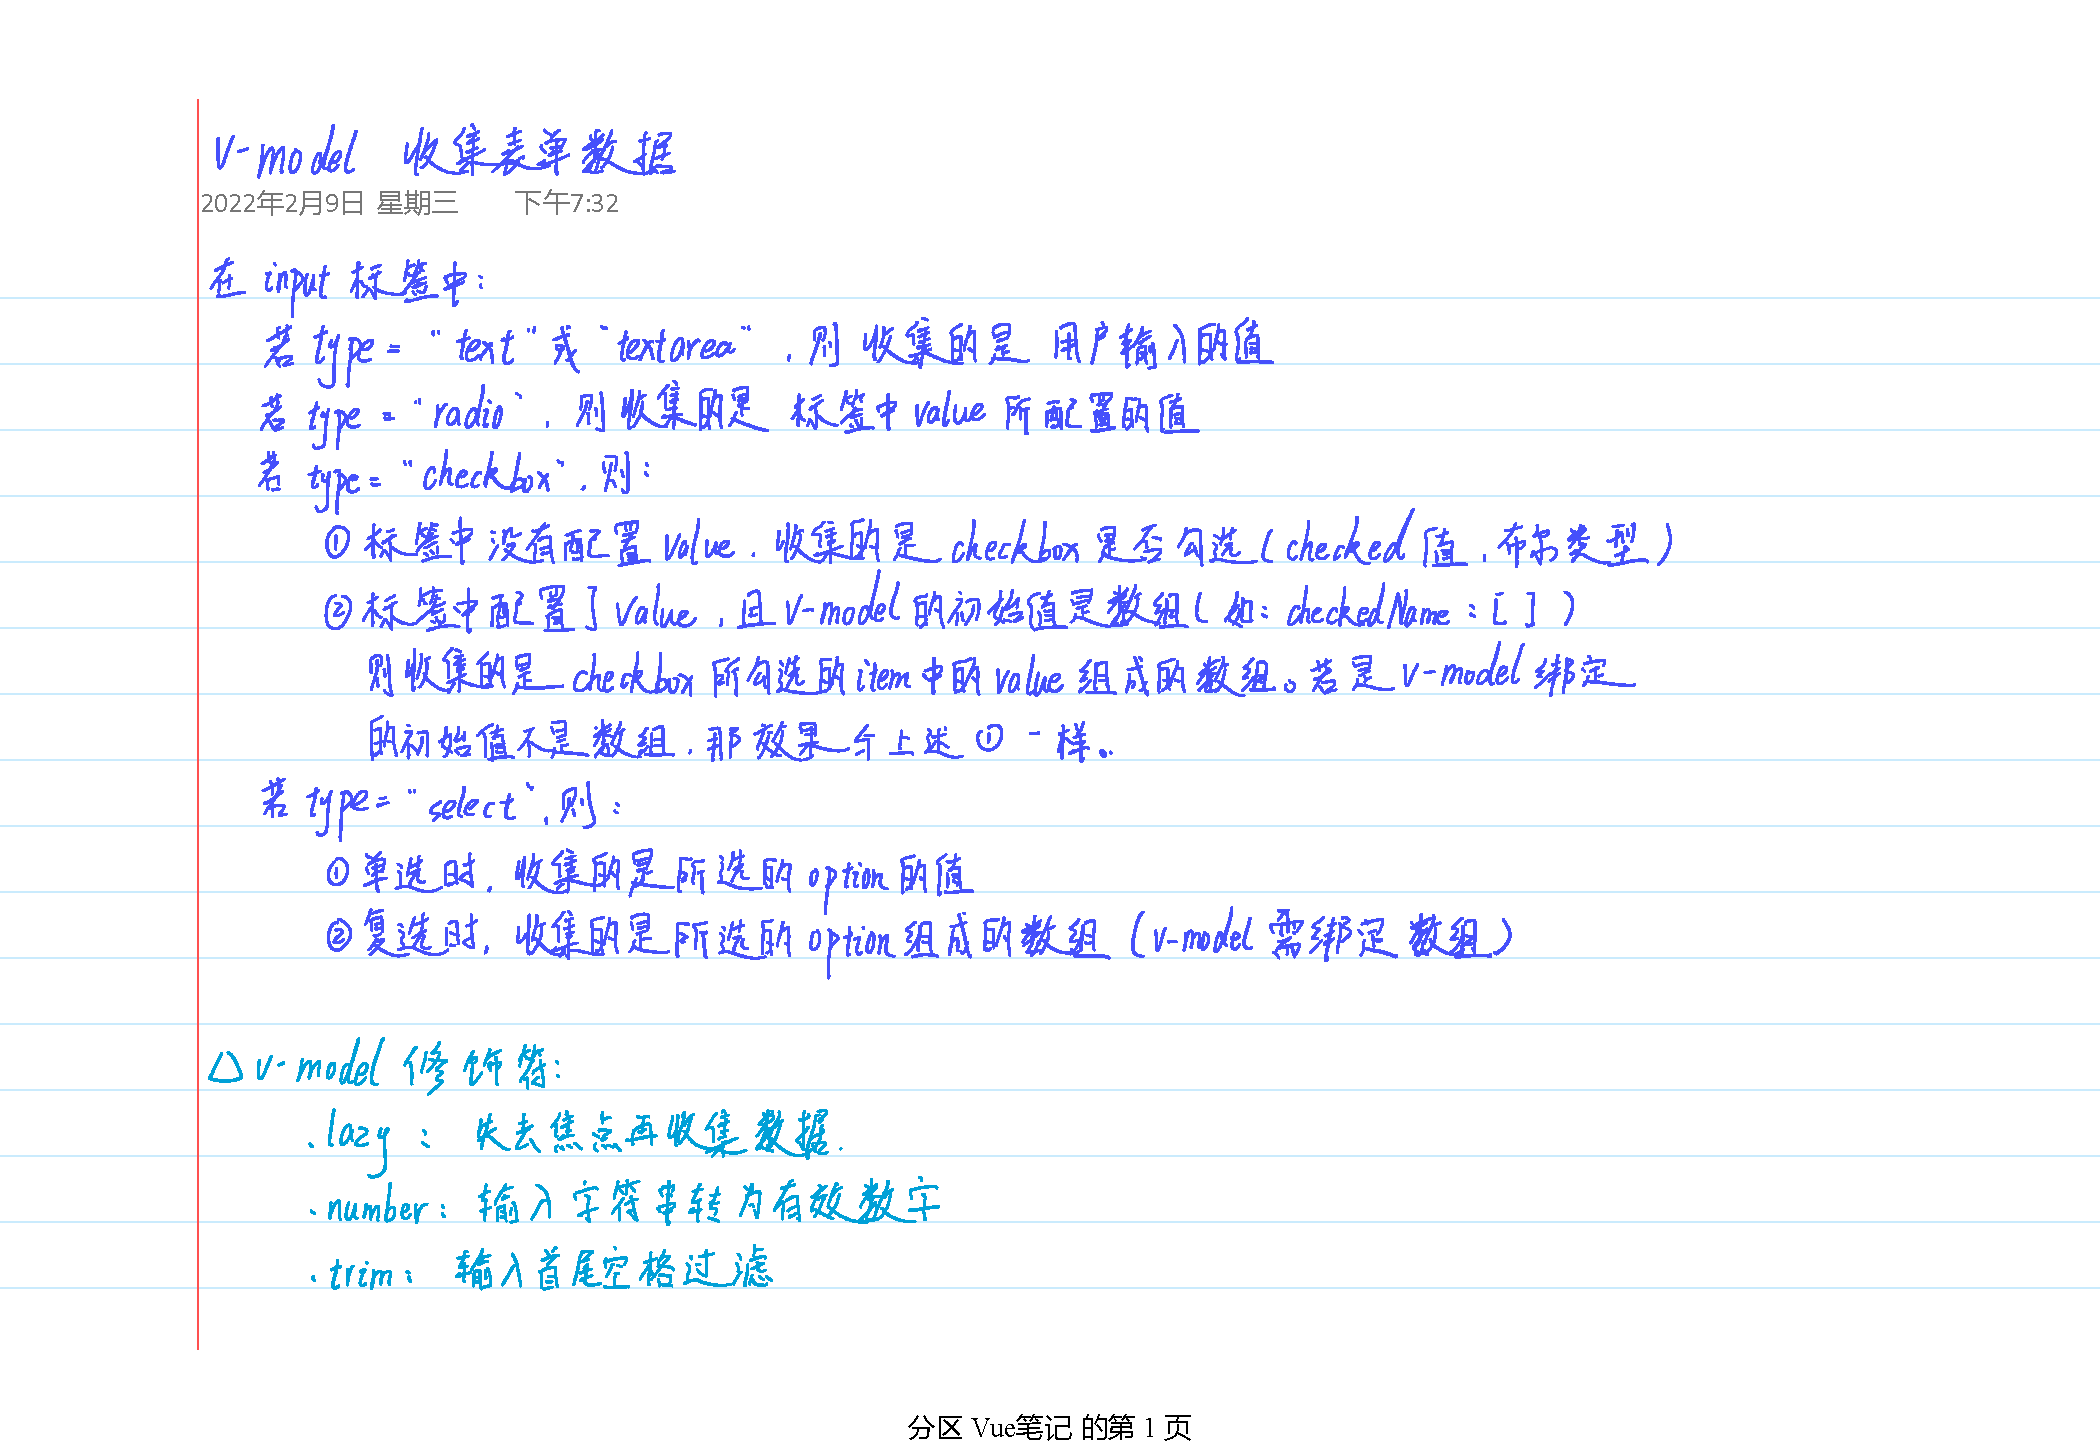 v-model 收集表单数据
2022年2月9日 星期三 下午7:32
在 input 标签中：
若 type = "text" 或 "textarea"，则 收集的是 用户输入的值
若 type = "radio"，则收集的是 标签中 value 所配置的值
若 type = "checkbox"，则：
① 标签中没有配置 value，收集的是 checkbox 是否勾选（checked 值，布尔类型）
② 标签中配置了 value，且 v-model 的初始值是数组（如：checkedName：[ ]）
则收集的是 checkbox 所勾选的 item 中的 value 组成的数组。若是 v-model 绑定
的初始值不是数组，那效果与上述 ① 一样。
若 type = "select"，则：
① 单选时，收集的是所选的 option 的值
② 复选时，收集的是所选的 option 组成的数组（v-model 需绑定数组）
△ v-model 修饰符：
.lazy： 失去焦点再收集数据.
.number：输入字符串转为有效数字
.trim： 输入首尾空格过滤
分区 Vue笔记 的第 1 页